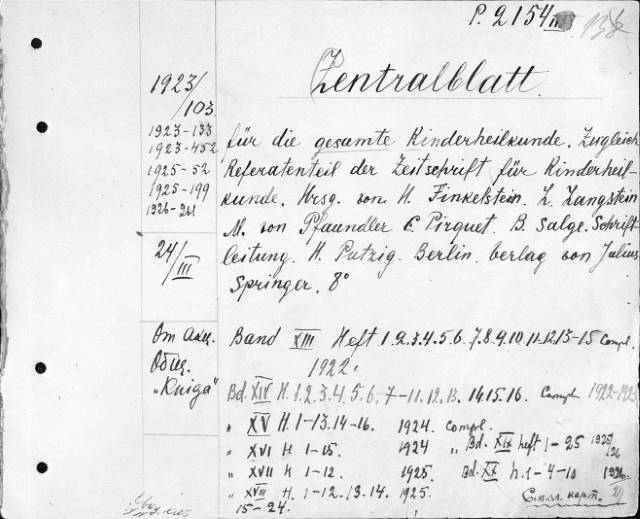 P. 2154 III
Zentralblatt
1923/
103
1923-133
1923-452
1925-52
1925-199
1926-241
24/
III
От Акц.
Общ.
„Kniga“
für die gesamte Kinderheilkunde. Zugleich
Referatenteil der Zeitschrift für Kinderheil-
kunde. Hrsg. von H. Finkelstein. L. Langstein
M. von Pfaundler C. Pirquet. B. Salge. Schrift
leitung. H. Putzig. Berlin. Verlag von Julius
Springer. 8°
Band XIII Heft 1.2.3.4.5.6.7.8.9.10.11-12.13-15 Compl.
1922.
Bd. XIV H. 1.2.3.4.5.6. 7-11.12.13. 14.15.16. Compl. 1922-1923
„ XV H. 1-13.14-16. 1924. compl.
„ XVI H 1-15. 1924 „ Bd. XIX heft 1-25 1925/26
„ XVII H 1-12. 1925. Bd. XX h. 1-4-10 1926
„ XVIII H. 1-12.13.14. 1925.
15-24.